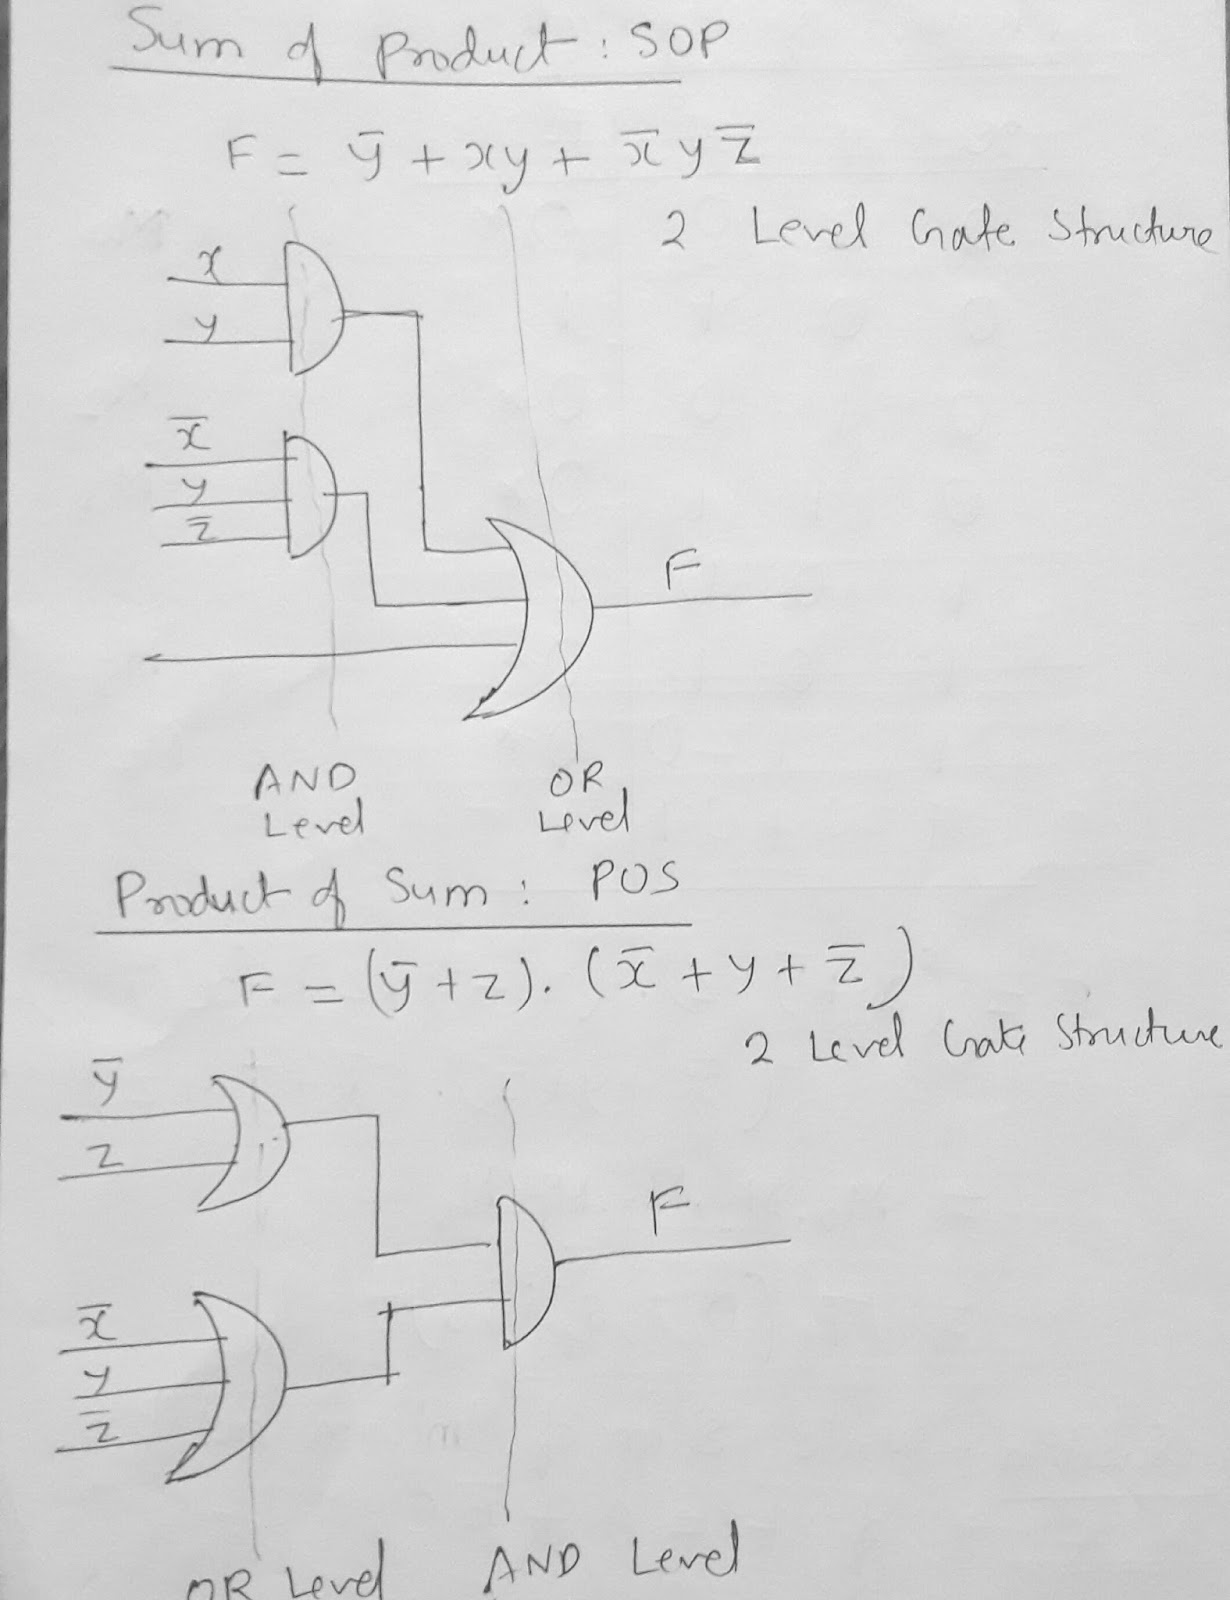 Sum of Product : SOP
F = ȳ + xy + x̄ y z̄
2 Level Gate Structure
x
y
x̄
y
z̄
F
AND
Level
OR
Level
Product of Sum : POS
F = (ȳ + z). (x̄ + y + z̄)
2 Level Gate Structure
ȳ
z
F
x̄
y
z̄
OR Level
AND Level